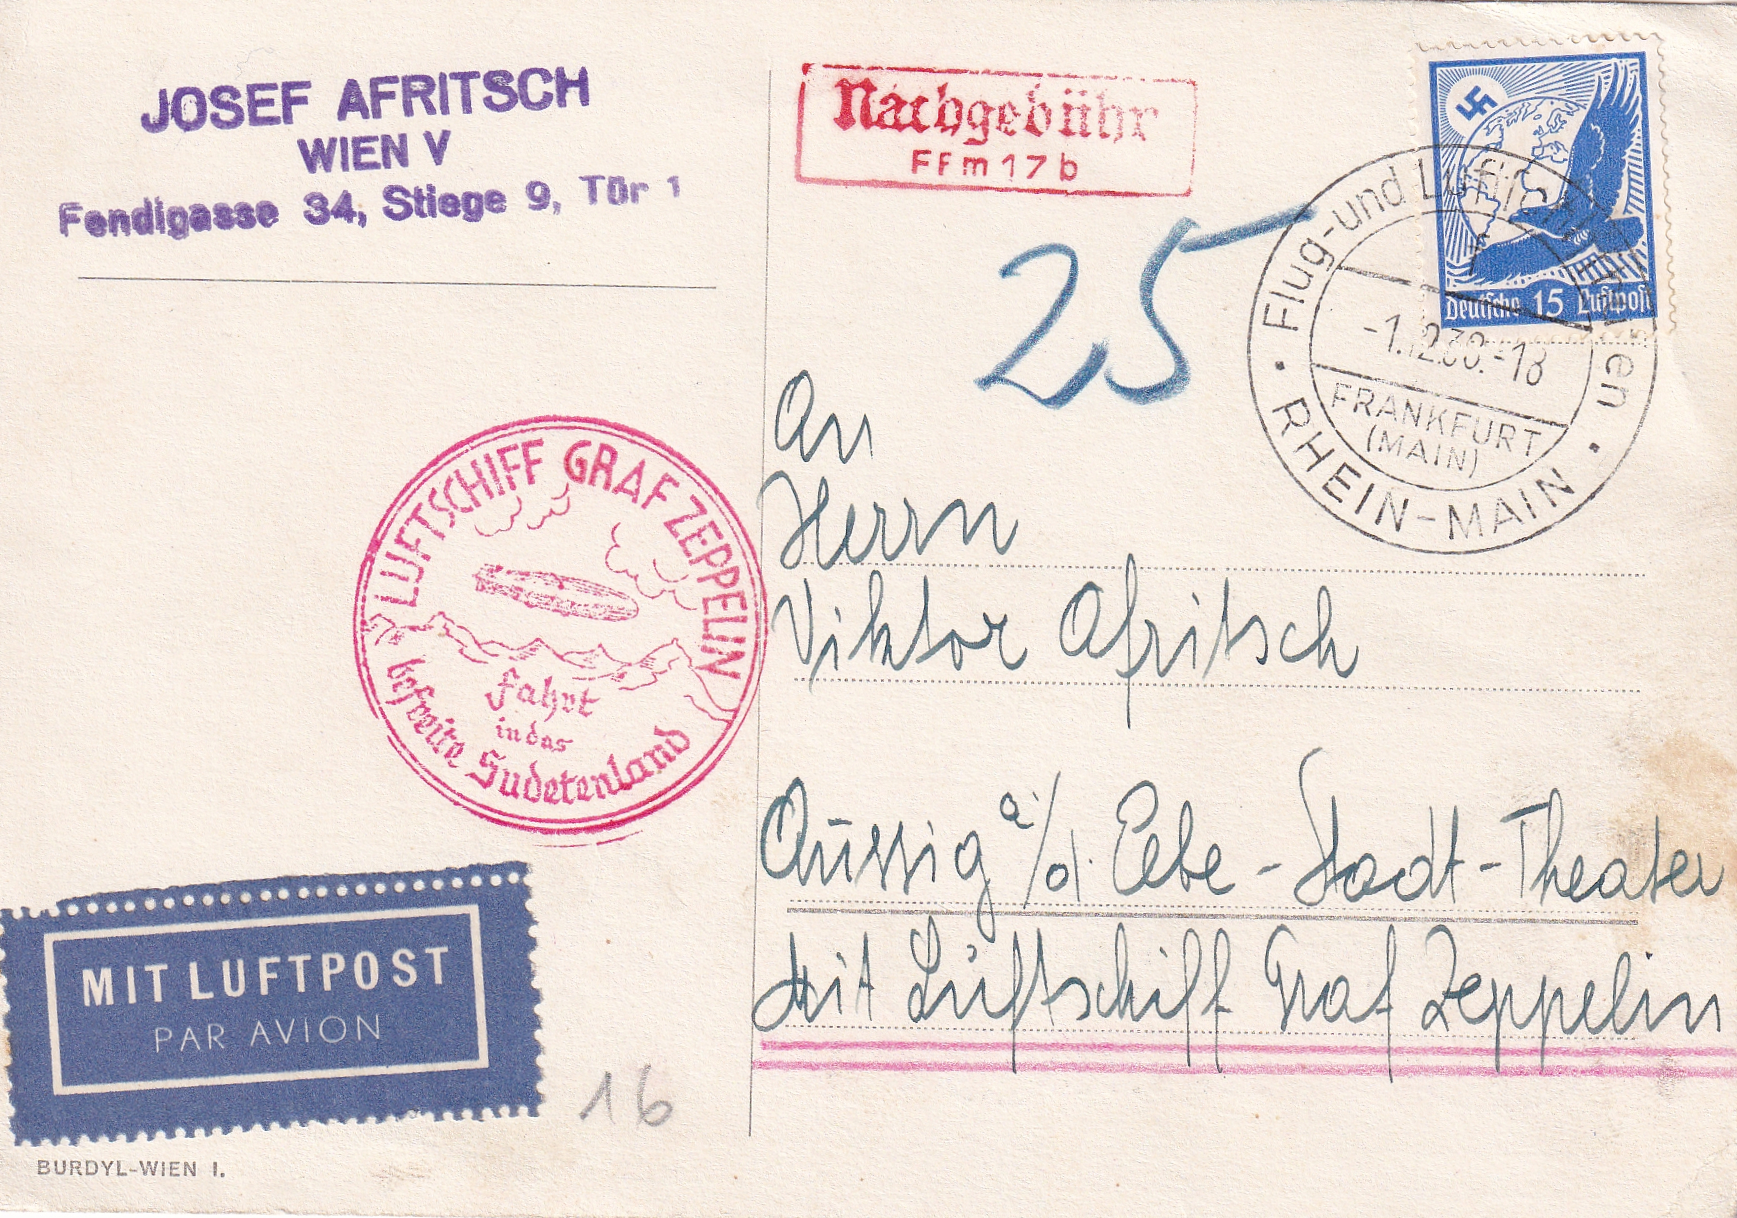 JOSEF AFRITSCH
WIEN V
Fendigasse 34, Stiege 9, Tür 1
Nachgebühr
FFm 17 b
25
Deutsche 15 Luftpost
Flug- und Luftschiffhafen
-1.12.38.-18
FRANKFURT
(MAIN)
RHEIN-MAIN
An
Herrn
Viktor Afritsch
Aussig a/d. Elbe - Stadt-Theater
Mit Luftschiff Graf Zeppelin
LUFTSCHIFF GRAF ZEPPELIN
Fahrt
in das
befreite Sudetenland
MIT LUFTPOST
PAR AVION
16
BURDYL-WIEN I.